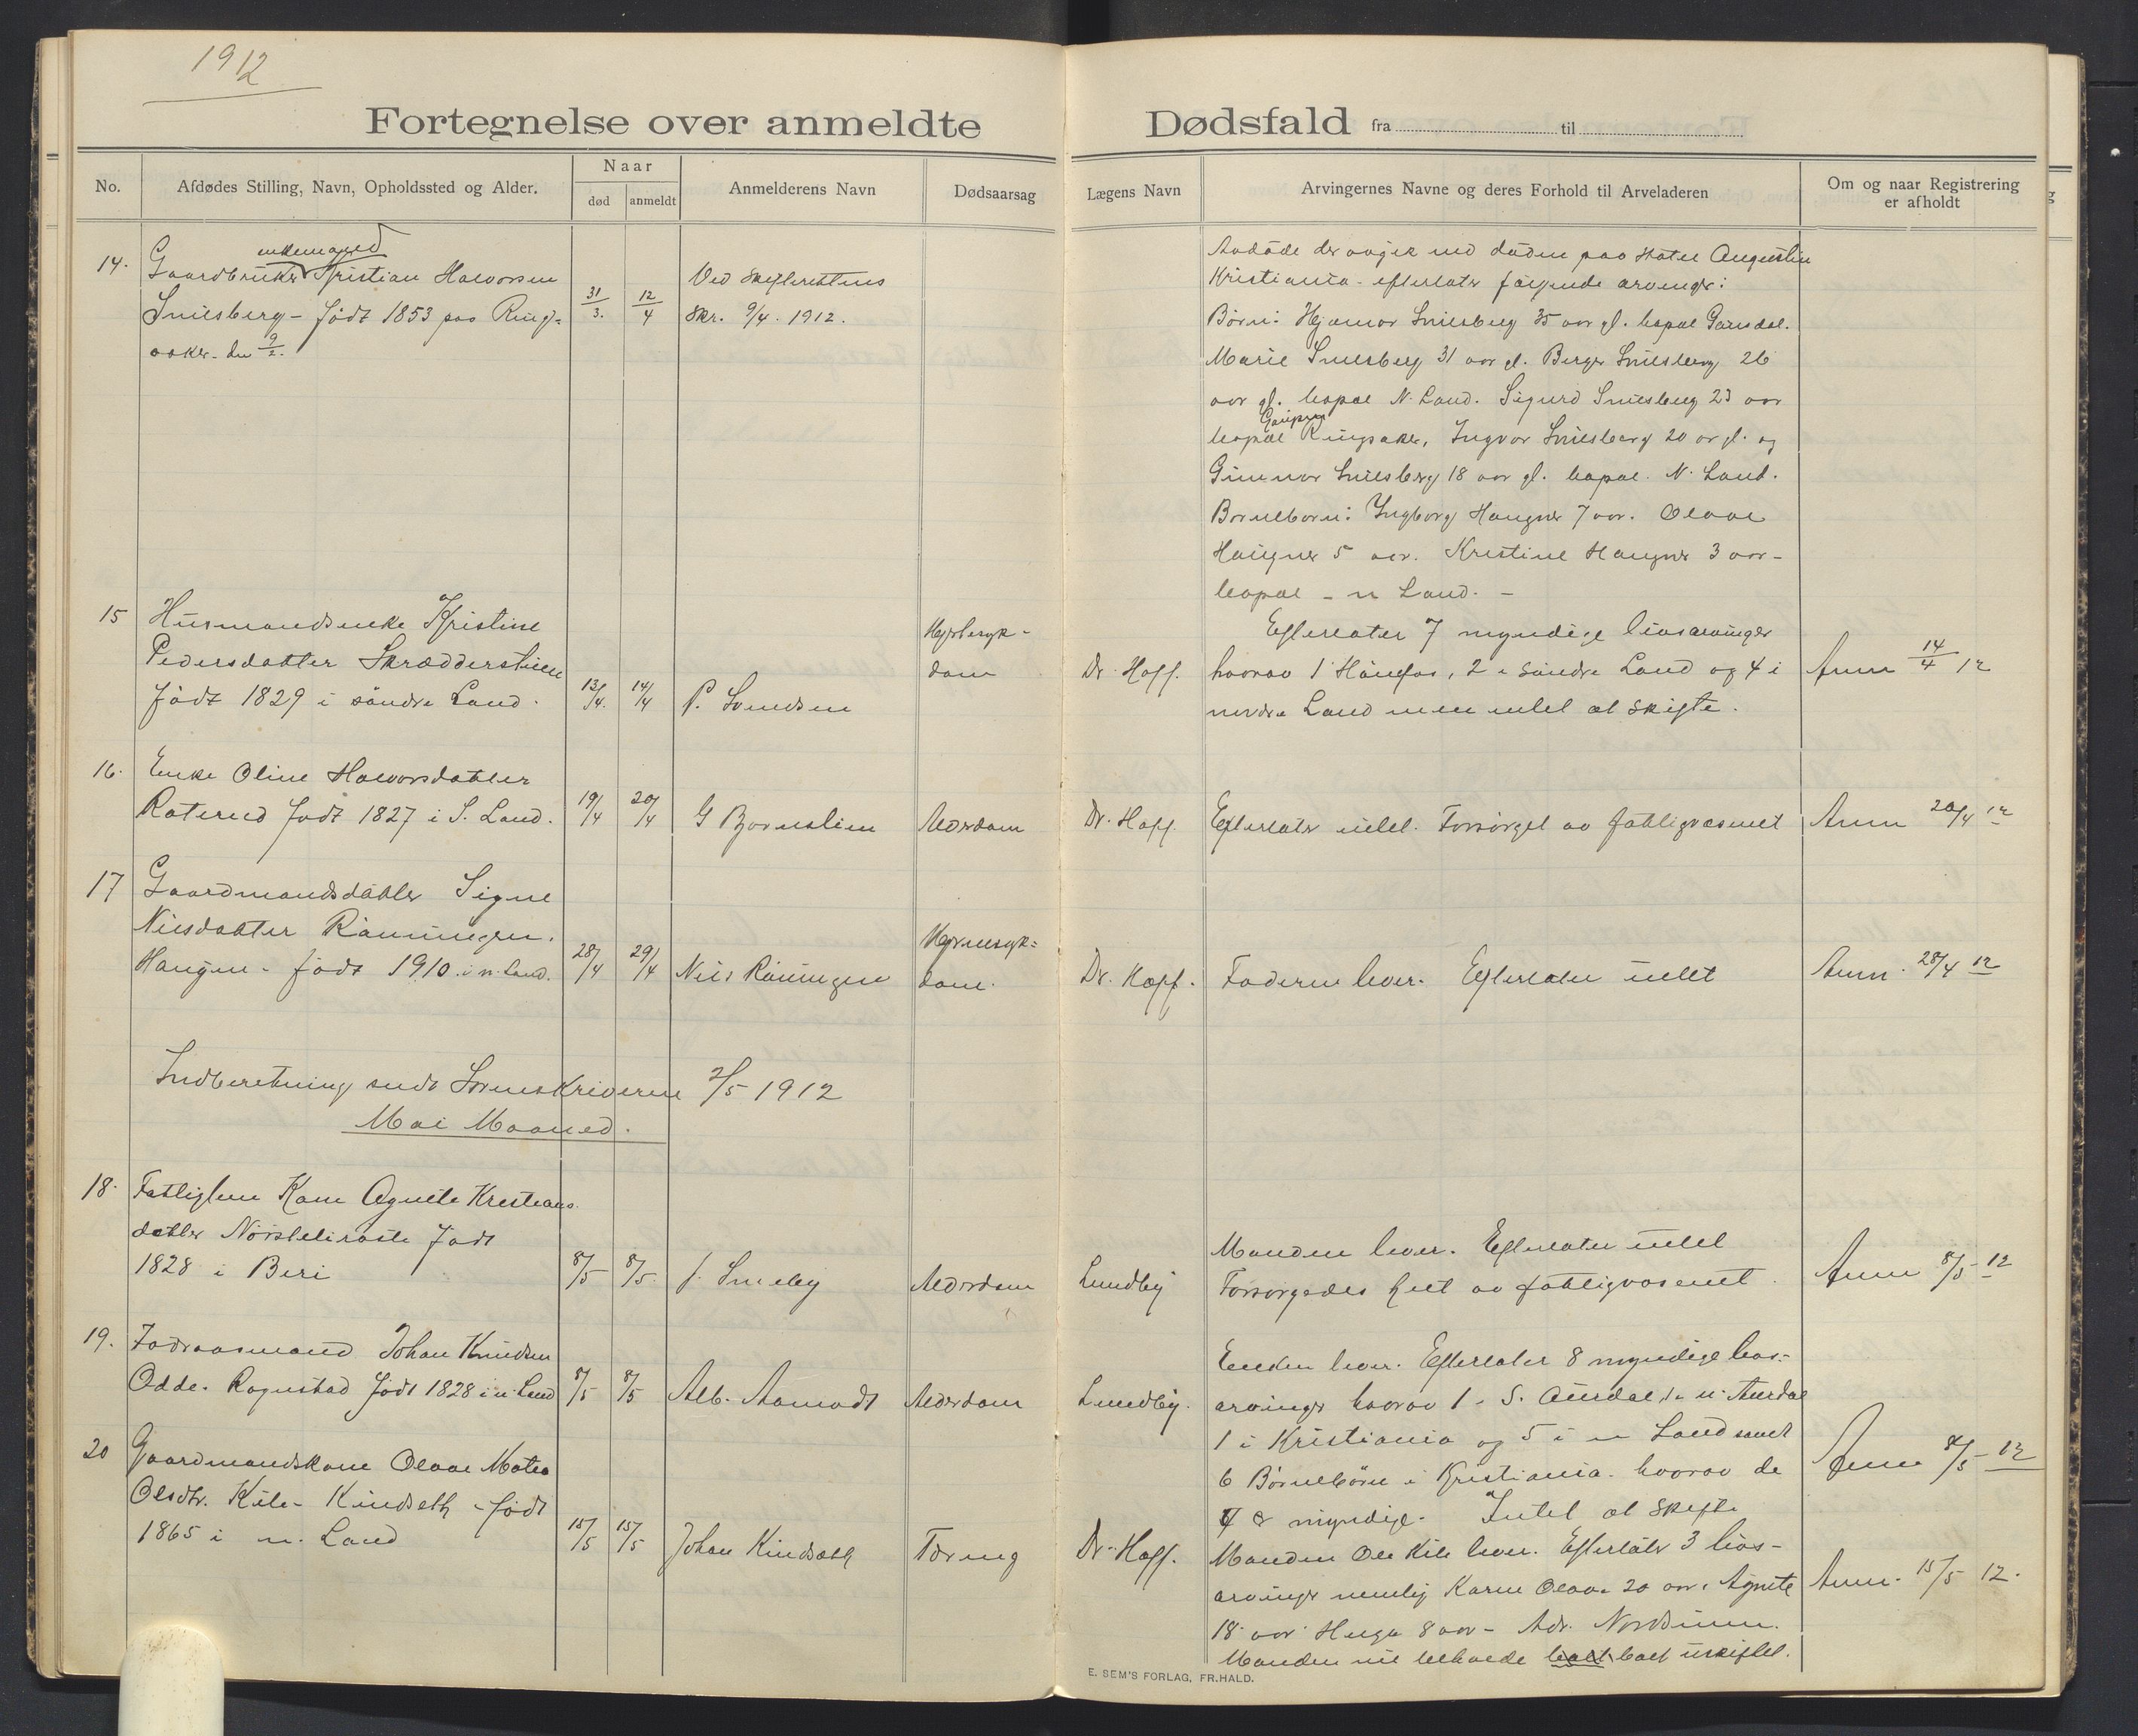 1912
Fortegnelse over anmeldte Dødsfald fra til
No.
Afdødes Stilling, Navn, Opholdssted og Alder.
Naar
død
anmeldt
Anmelderens Navn
Dødsaarsag
Lægens Navn
Arvingernes Navne og deres Forhold til Arveladeren
Om og naar Registrering
er afholdt
14.
enkemand
Gaardbruker Kristian Halvorsen
Smilsberg - født 1853 paa Rings=
aker. den 9/2.
31/3.
12/4
Ved Skifterettens
Skr. 9/4. 1912.
Avdøde der avgik ved døden paa Hotel Augustin
Kristiania - efterlater følgende arvinger:
Børn: Hjalmar Smilsberg 35 aar gl. bopæl
Marie Smilsberg 31 aar gl. Birger Smilsberg 26
aar gl. bopæl N. Land. Sigurd Smilsberg 23 aar
bopæl Ringsaker, Ingvar Smilsberg 20 ar gl. og
Gunnar Smilsberg 18 aar gl. bopæl N. Land.
Børnebørn: Ingborg Haugner 7 aar. Olave
Haugner 5 aar. Kristine Haugner 3 aar -
bopæl - n Land. -
15
Husmandsenke Kristine
Pedersdatter Skrædderstuen
født 1829 i søndre Land.
13/4.
14/4
P. Svendsen
Hjertesyk-
dom
Dr. Hoff.
Efterlater 7 myndige livsarvinger
hvorav 1 Hønefos, 2 i Søndre Land og 4 i
nordre Land men intet at skifte.
Anm 14/4 12
16.
Enke Oline Halvorsdatter
Roterud født 1827 i S. Land.
19/4
20/4
G Bjørnslien
Alderdom
Dr. Hoff
Efterlater intet. Forsørget av fattigvæsenet
Anm 20/4 12
17
Gaardmandsdatter Signe
Nilsdatter Rønningen.
Haugen - født 1910 i n. Land.
28/4
29/4
Nils Rønningen
Hjernesyk=
dom.
Dr. Hoff.
Faderen lever. Efterlater intet
Anm. 28/4 12
Indberetning sendt Sorenskriveren 2/5 1912
Mai Maaned.
18.
Fattiglem Kone Agnete Kristians
datter født
1828 i Biri
8/5
8/5.
J. Smeby
Alderdom
Lundby
Manden lever. Efterlater intet
Forsørgedes helt av fattigvæsenet.
Anm 8/5 12
19.
Føderaadsmand Johan Knudsen
Odde. Rognstad født 1828 i n. Land
8/5
8/5
Alb. Aamodt
Alderdom
Lundby.
Enken lever. Efterlater 8 myndige livs-
arvinger hvorav 1 i S. Aurdal, 1 i n. Aurdal
1 i Kristiania og 5 i n Land samt
6 Børnebørn i Kristiania. hvorav de
4 er myndige. Intet at skifte
Anm 8/5 12
20
Gaardmandskone Olave Matea
Olsdtr. Kile - Kindseth - født
1865 i n. Land
15/5
15/5
Johan Kindseth
Tæring
Dr. Hoff.
Manden Ole Kile lever. Efterlater 3 livs-
arvinger nemlig Karen Olava 20 aar, Agnete
18 aar Helga 8 aar - Adr. Nordsinnen.
Manden vil beholde boet uskiftet.
Anm. 15/5 12.
E. SEM'S FORLAG, FR.HALD.